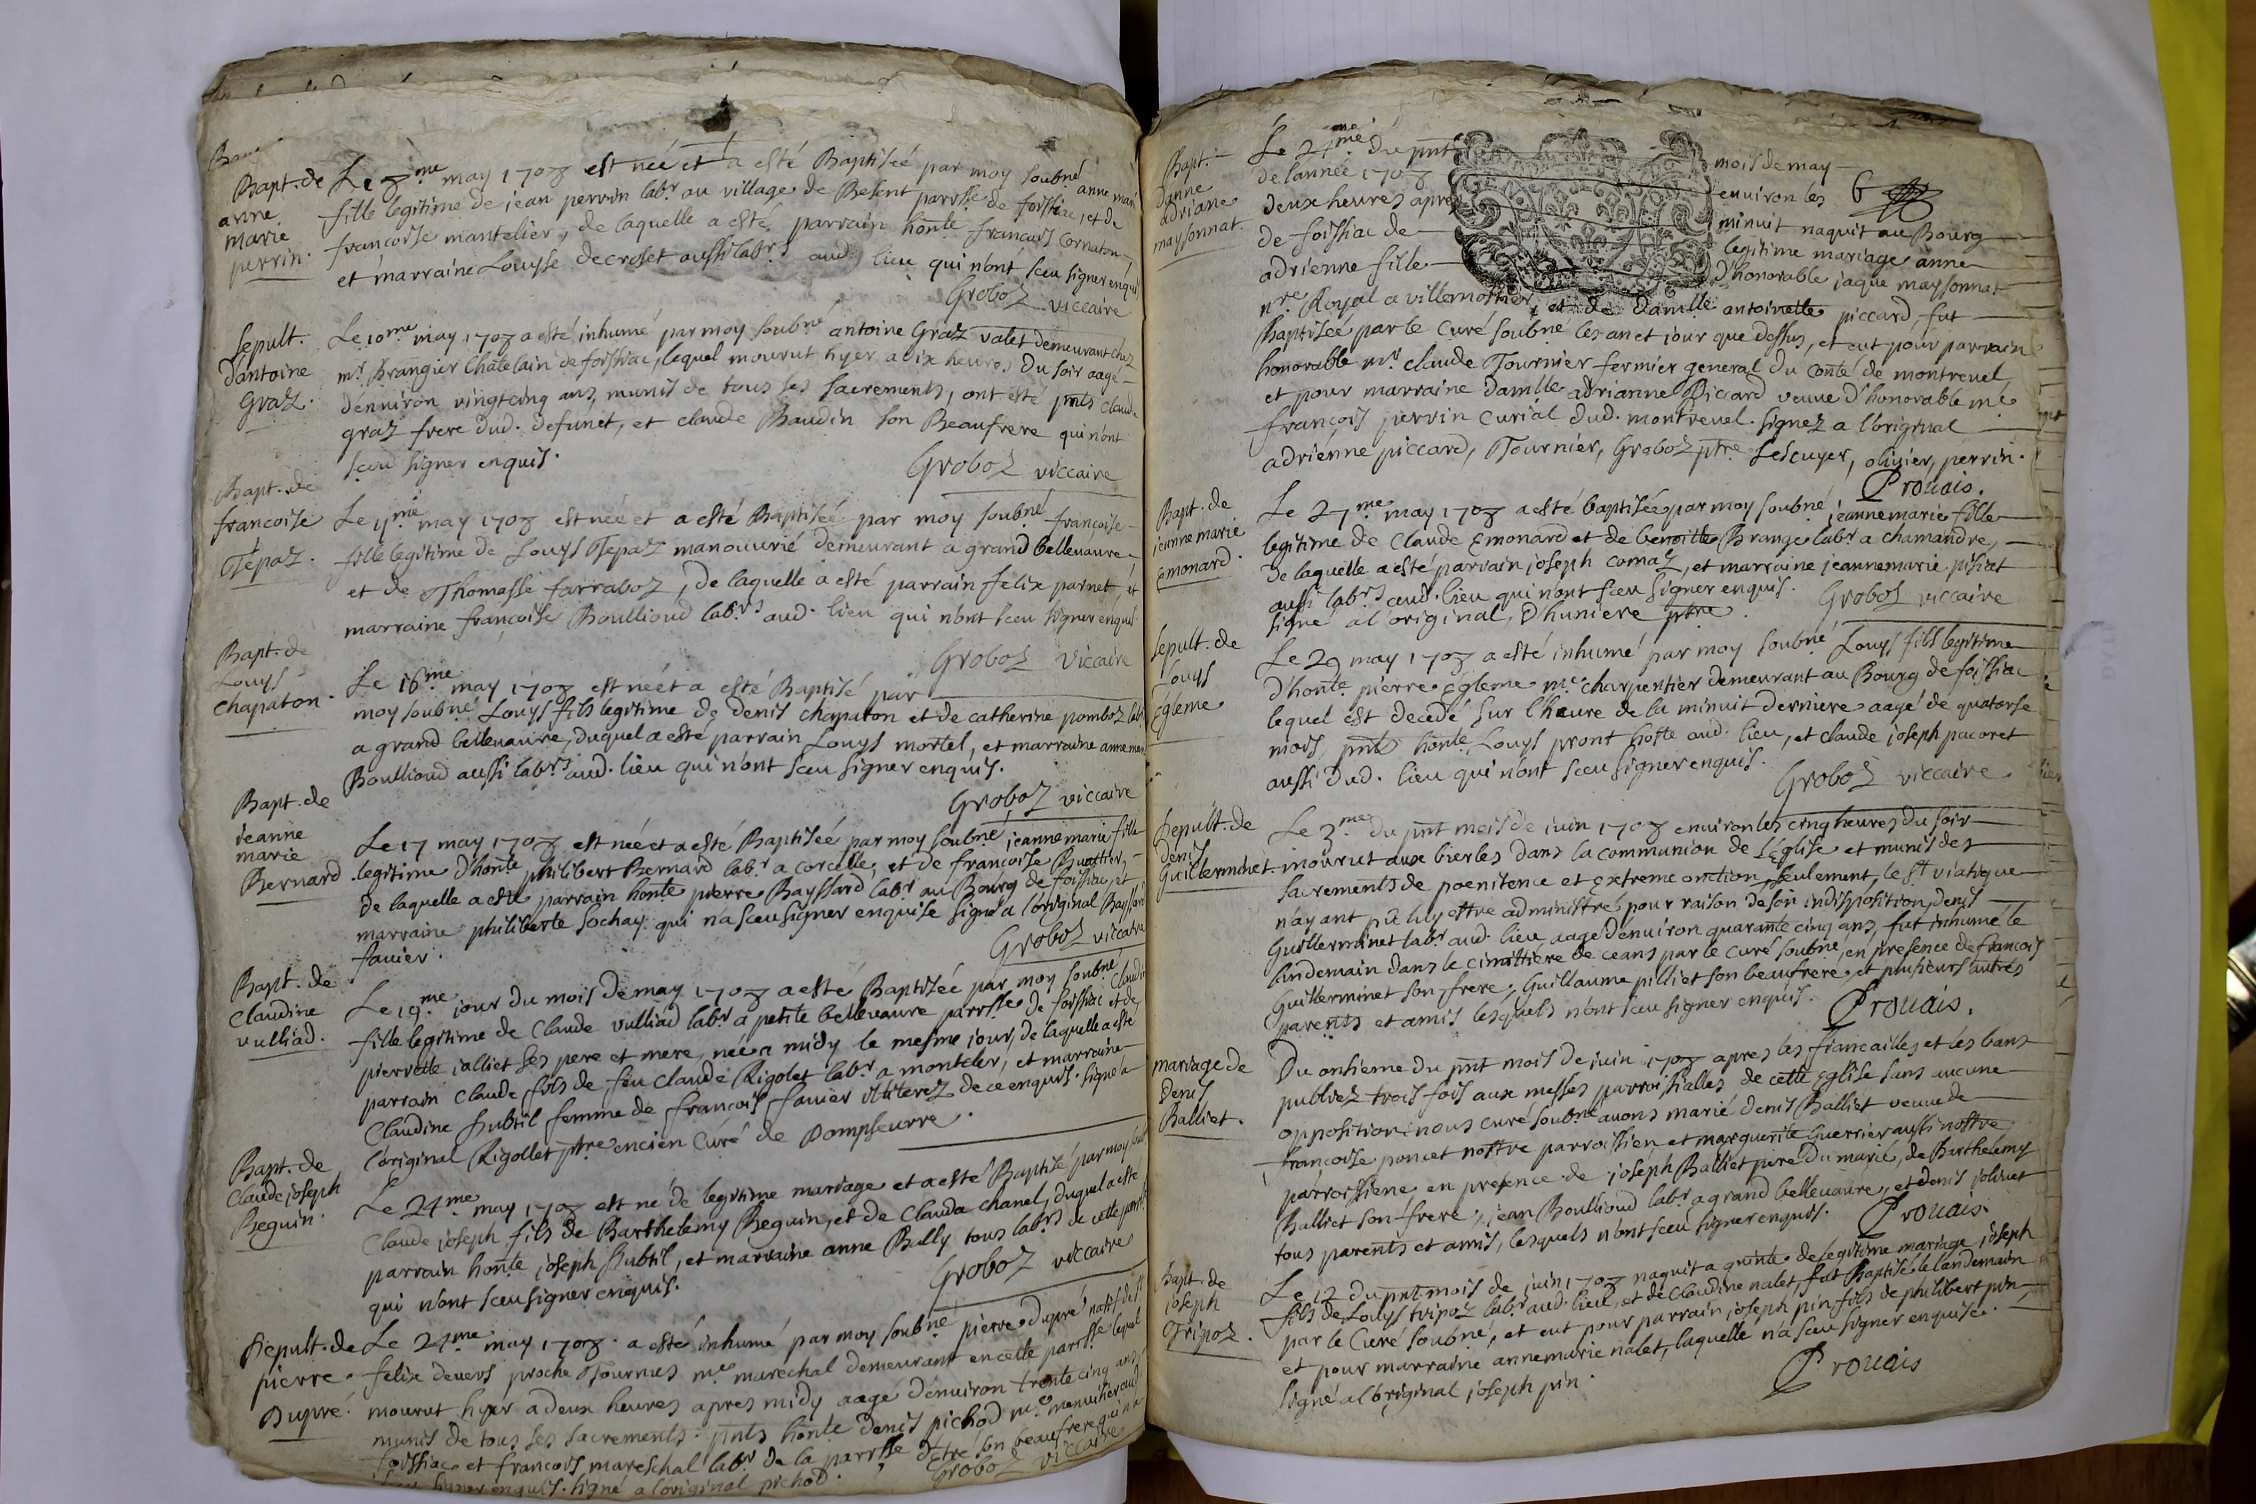 Bapt. de
anne
marie
perrin.
Le 8me may 1708 est neé et a esté Baptiseé par moy soubné anne marie
fille legitime de jean perrin labr au village de Besent parrsse de foissiac, et de
francoise mantelier, de laquelle a esté parrain honte francois Cornaton
et marraine Louyse decroset aussi labrs aud. lieu qui n'ont sceu signer enquis
Groboz viccaire
Sepult.
d'antoine
Graz.
Le 10me may 1708 a esté inhumé par moy soubné antoine Graz valet demeurant chez
mr Brangier Chatelain de foissiac, lequel mourut hyer a dix heures du soir aagé
d'environ vingtcinq ans, munis de tous ses sacrements, ont esté pnts Claude
graz frere dud. defunct, et claude Baudin son Beaufrere qui n'ont
sceu signer enquis.
Groboz viccaire
Bapt. de
francoise
Tepaz.
Le 11me may 1708 est neé et a esté Baptiseé par moy soubné francoise
fille legitime de Louys Tepaz manouvrié demeurant a grand bellevaure
et de Thomasse farraboz, de laquelle a esté parrain felix parnet et
marraine francoise Boullioud labrs aud. lieu qui n'ont sceu signer enquis
Groboz viccaire
Bapt. de
Louys
chapaton.
Le 16me may 1708 est né et a esté Baptisé par
moy soubné Louys fils legitime de denis chapaton et de catherine pomboz labrs
a grand bellevaure, duquel a esté parrain Louys mortel, et marraine annemarie
Boullioud aussi labrs aud. lieu qui n'ont sceu signer enquis.
Groboz viccaire
Bapt. de
jeanne
marie
Bernard.
Le 17 may 1708 est neé et a esté Baptiseé par moy soubné jeannemarie fille
legitime d'honte philibert Bernard labr a corcelle, et de francoise Buattier,
de laquelle a esté parrain honte pierre Bayssard labr au Bourg de foissiac, et
marraine philiberte Sochay qui n'a sceu signer enquise signé a l'original Bayssard
favier.
Groboz viccaire
Bapt. de
Claudine
vulliad.
Le 19me jour du mois de may 1708 a esté Baptiseé par moy soubné Claudine
fille legitime de Claude vulliad labr a petite bellevaure parrsse de foissiac et de
pierrette jalliet ses pere et mere, neé a midy le mesme jour, de laquelle a esté
parrain Claude fils de feu Claude Rigolet labr a monteler, et marraine
Claudine subtil femme de francois favier illiterez de ce enquis. signé a
l'original Rigollet ptre encien Curé de Dompseurre.
Bapt. de
Claude joseph
Beguin.
Le 24me may 1708 est né de legitime mariage et a esté Baptisé par moy soubné
Claude joseph fils de Barthelemy Beguin, et de Clauda chanel, duquel a esté
parrain honte joseph subtil, et marraine anne Bully tous labrs de cette parrsse
qui n'ont sceu signer enquis.
Groboz viccaire
Sepult. de
pierre
Dupré.
Le 24me may 1708 a esté inhumé par moy soubné pierre dupré natif de st
felix devers proche Tournus me marechal demeurant en cette parrsse lequel
mourut hyer a deux heures apres midy aagé d'environ trente cinq ans
munis de tous ses sacrements. pnts honte denis pichod me menuisier aud
foissiac et francois mareschal labr de la parrsse d'Etré son beaufrere qui n'a
sceu signer enquis. signé a l'original pichod.
Groboz viccaire
Bapt.
d'anne
adriane
maysonnat.
Le 27me du pnt mois de may
de l'année 1708 environ les 6
deux heures apres minuit naquit au Bourg
de foissiac de legitime mariage anne
adrienne fille d'honorable jaque maysonnat
nre Royal a villemostier, et de damlle antoinette piccard, fut
Baptiseé par le Curé soubné les an et jour que dessus, et eut pour parrain
honorable mr claude Tournier fermier general du Conté de montrevel
et pour marraine damlle adrianne Piccard veuve d'honorable me
francois perrin curial dud. montrevel. signez a l'original
adrienne piccard, Tournier, Groboz ptre Lescuyer, olivier, perrin.
Prouais.
Bapt. de
jeanne marie
Emonard.
Le 27me may 1708 a esté baptiseé par moy soubné jeannemarie fille
legitime de Claude Emonard et de benoitte Brange labr a chamandre,
de laquelle a esté parrain joseph comaz, et marraine jeannemarie pisiat
aussi labrs aud. lieu qui n'ont sceu signer enquis.
signé a l'original, Dhuniere ptre
Groboz viccaire
Sepult. de
Louys
Egleme
Le 29 may 1708 a esté inhumé par moy soubné Louys fils legitime
d'honte pierre Egleme me charpentier demeurant au Bourg de foissiac
lequel est decedé sur l'heure de la minuit derniere aagé de quatorse
mois, pnt honte Louys pront hoste aud. lieu, et claude joseph pacoret
aussi dud. lieu qui n'ont sceu signer enquis.
Groboz viccaire.
Sepult. de
denis
Guillerminet.
Le 3me du pnt mois de juin 1708 environ les cinq heures du soir
mourut aux bierles dans la communion de L'Eglise et munis des
sacrements de poenitence et extreme onction, seulement, le st viatique
n'ayant pû luy estre administré pour raison de son indisposition, denis
Guillerminet labr aud. lieu aagé d'environ quarante cinq ans, fut inhumé le
landemain dans le cimittiere de ceans par le curé soubné, en presence de francois
Guillerminet son frere, Guillaume pilliet son beaufrere et plusieurs autres
parents et amis lesquels n'ont sceu signer enquis.
Prouais.
mariage de
Denis
Balliet.
Du onsieme du pnt mois de juin 1708 apres les fiancailles et les bans
publiez trois fois aux messes parroissialles de cette Eglise sans aucune
opposition: nous curé soubné avons marié denis Balliet veuve de
francoise poncet nostre parroissien, et marguerite Guerrier aussi nostre
parroissiene en presence de joseph Balliet pere du marié, de Barthelemy
Balliet son frere, jean Boullioud labr a grand bellevaure, et denis jolivet
tous parents et amis, lesquels n'ont sceu signer enquis.
Prouais.
Bapt. de
joseph
Tripoz.
Le 12 du pnt mois de juin 1708 naquit a quinte de legitime mariage joseph
fils de Louys tripoz labr aud. lieu, et de Claudine nalet, fut Baptisé le landemain
par le Curé soubné, et eut pour parrain joseph pin fils de philibert pin
et pour marraine annemarie nalet, laquelle n'a sceu signer enquise.
signé a l'original joseph pin.
Prouais